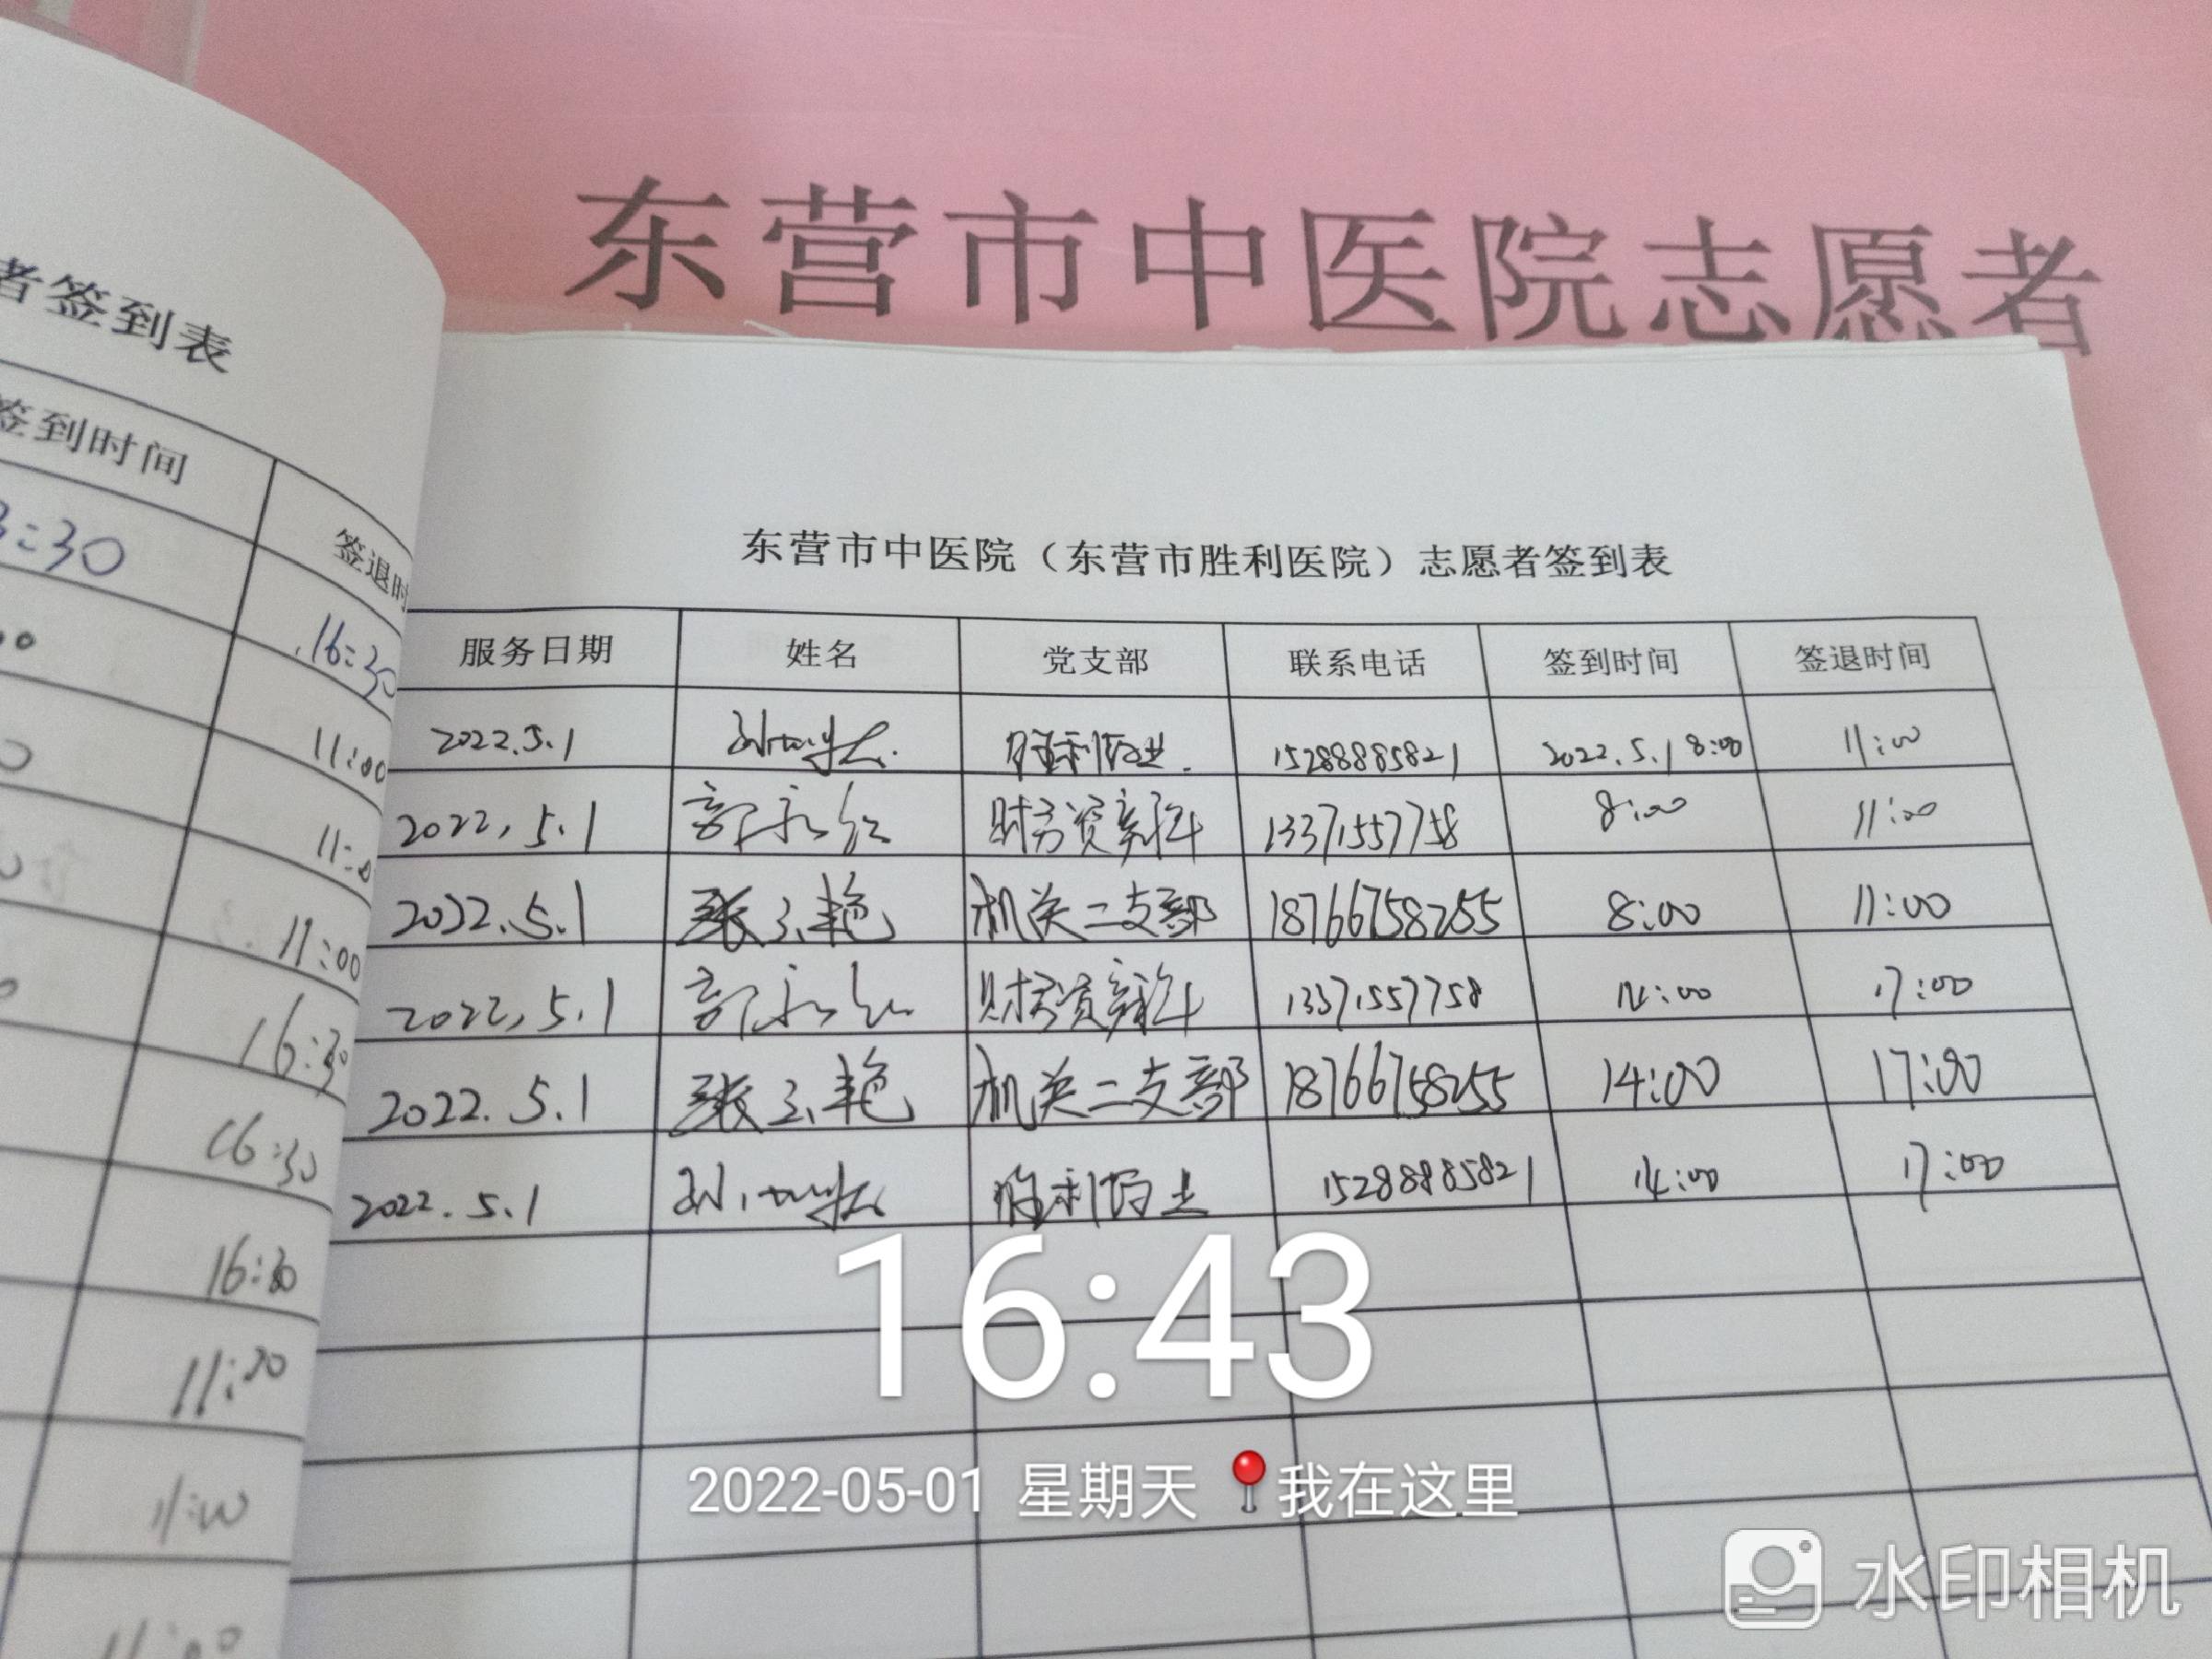 东营市中医院志愿者
者签到表
签到时间 签退时
3:30 16:30
11:00
11:0
11:00
16:30
16:30
16:30
11:30
11:00
11:00
东营市中医院（东营市胜利医院）志愿者签到表
服务日期 姓名 党支部 联系电话 签到时间 签退时间
2022.5.1 胜利 15288885821 2022.5.1 8:00 11:00
2022.5.1 郭永红 财务资产 13371557758 8:00 11:00
2022.5.1 张玉艳 机关二支部 18766758255 8:00 11:00
2022.5.1 郭永红 财务资产 13371557758 14:00 17:00
2022.5.1 张玉艳 机关二支部 18766758255 14:00 17:00
2022.5.1 胜利 15288885821 14:00 17:00
16:43
2022-05-01 星期天 我在这里
水印相机